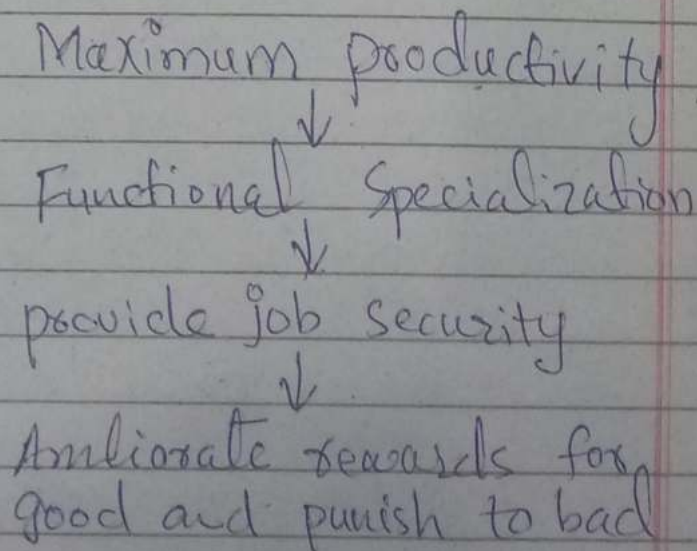 Maximum productivity
↓
Functional Specialization
↓
provide job security
↓
Amliorate rewards for
good and punish to bad